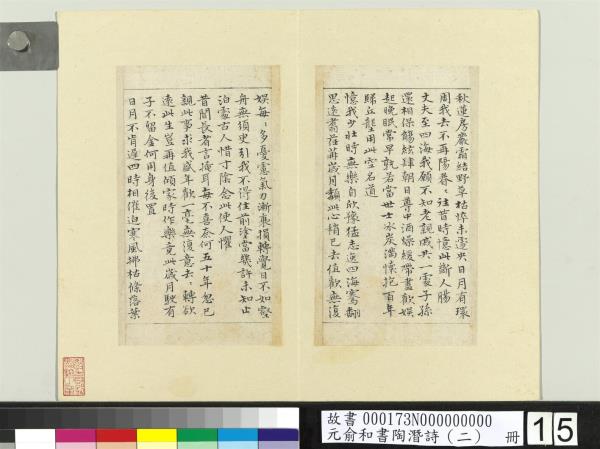 秋蓮房嚴霜結野草枯悴未遽央日月有環
周我去不再陽眷〻往昔時憶此斷人腸
丈夫志四海我願不知老親戚共一處子孫
還相保觴絃肆朝日尊中酒燥緩帶盡歡娛
起晚眠常早孰若當世士冰炭滿懷抱百年
歸丘壟用此空名道
憶我少壯時無樂自欣豫猛志逸四海騫翮
思遠翥荏苒歲月頹此心稍已去值歡無復
娛每〻多憂慮氣力漸衰損轉覺日不如壑
舟無須臾引我不得住前塗當幾許未知止
泊處古人惜寸陰念此使人懼
昔聞長者言掩耳每不喜奈何五十年忽已
親此事求我盛年歡一毫無復意去〻轉欲
遠此生豈再值傾家時作樂竟此歲月駛有
子不留金何用身後置
日月不肯遲四時相催迫寒風拂枯條落葉
故書 000173N000000000
元俞和書陶潛詩(二) 冊
15